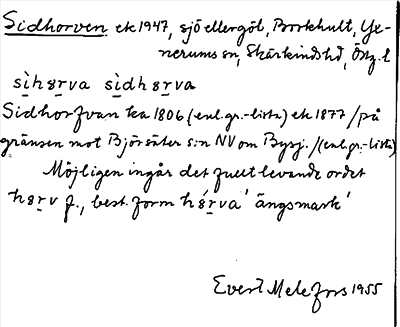 Sidhorven ek 1947, sjö ellergöl, Borkhult, Yx-
nerums sn, Skärkinds hd, Östg. l
sìhørva sìdhørva
Sidhorfvan ka 1806 (enl. gr.-lista) ek 1877 / på
gränsen mot Björsäter s:n NV om Bysj. / (enl. gr.-lista)
Möjligen ingår det fullt levande ordet
hørv f., best. form hǿrva 'ängsmark'
Evert Melefors 1955